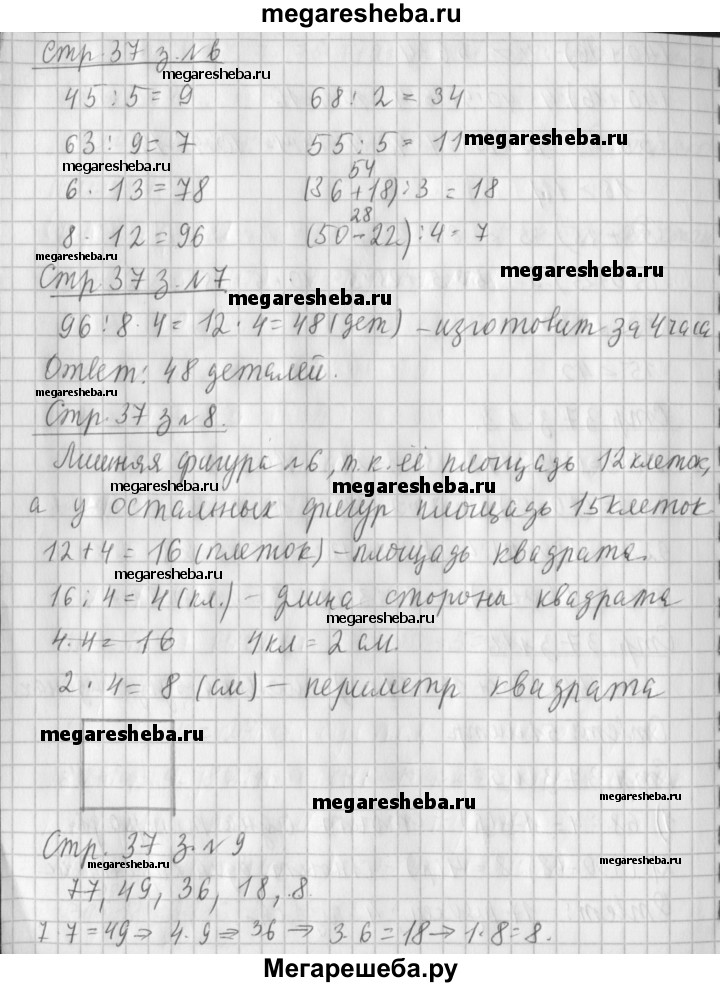 megaresheba.ru
Стр. 37 з. №6
megaresheba.ru
45 : 5 = 9 68 : 2 = 34
63 : 9 = 7 55 : 5 = 11
megaresheba.ru
megaresheba.ru
54
6 · 13 = 78 (36+18) : 3 = 18
28
8 · 12 = 96 (50-22) : 4 = 7
megaresheba.ru
megaresheba.ru
Стр. 37 з. №7
megaresheba.ru
96 : 8 · 4 = 12 · 4 = 48 (дет) - изготовит за 4 часа
Ответ: 48 деталей.
megaresheba.ru
Стр. 37 з №8.
Лишняя фигура №6, т.к. её площадь 12 клеток,
megaresheba.ru
а у остальных фигур площадь 15 клеток
12 + 4 = 16 (клеток) - площадь квадрата.
megaresheba.ru
16 : 4 = 4 (кл.) - длина стороны квадрата
megaresheba.ru
4 · 4 = 16 4 кл = 2 см.
2 · 4 = 8 (см) - периметр квадрата
megaresheba.ru
megaresheba.ru
megaresheba.ru
Стр. 37 з. №9
megaresheba.ru
megaresheba.ru
77, 49, 36, 18, 8.
7 · 7 = 49 → 4 · 9 = 36 → 3 · 6 = 18 → 1 · 8 = 8.
Мегарешеба.ру